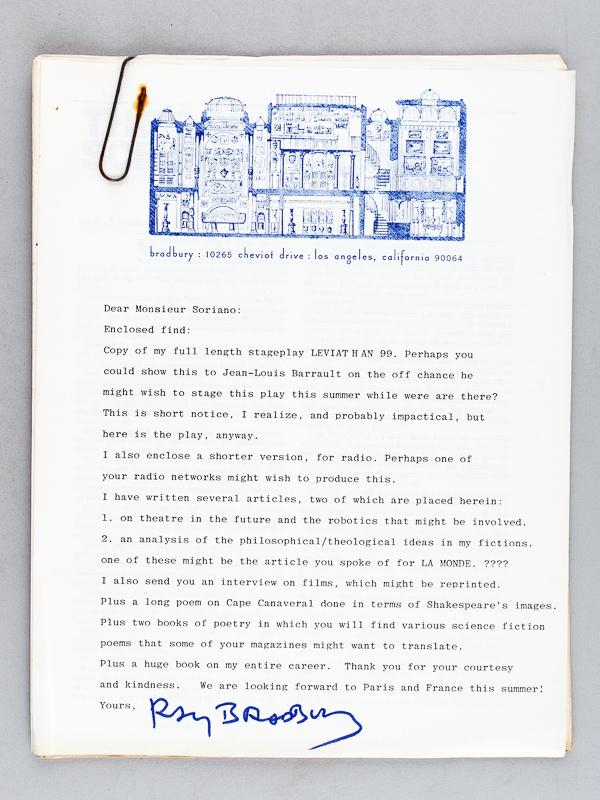 bradbury : 10265 cheviot drive : los angeles, california 90064
Dear Monsieur Soriano:
Enclosed find:
Copy of my full length stageplay LEVIATHAN 99. Perhaps you
could show this to Jean-Louis Barrault on the off chance he
might wish to stage this play this summer while were are there?
This is short notice, I realize, and probably impactical, but
here is the play, anyway.
I also enclose a shorter version, for radio. Perhaps one of
your radio networks might wish to produce this.
I have written several articles, two of which are placed herein:
1. on theatre in the future and the robotics that might be involved.
2. an analysis of the philosophical/theological ideas in my fictions.
one of these might be the article you spoke of for LA MONDE. ????
I also send you an interview on films, which might be reprinted.
Plus a long poem on Cape Canaveral done in terms of Shakespeare's images.
Plus two books of poetry in which you will find various science fiction
poems that some of your magazines might want to translate.
Plus a huge book on my entire career. Thank you for your courtesy
and kindness. We are looking forward to Paris and France this summer!
Yours, Ray Bradbury